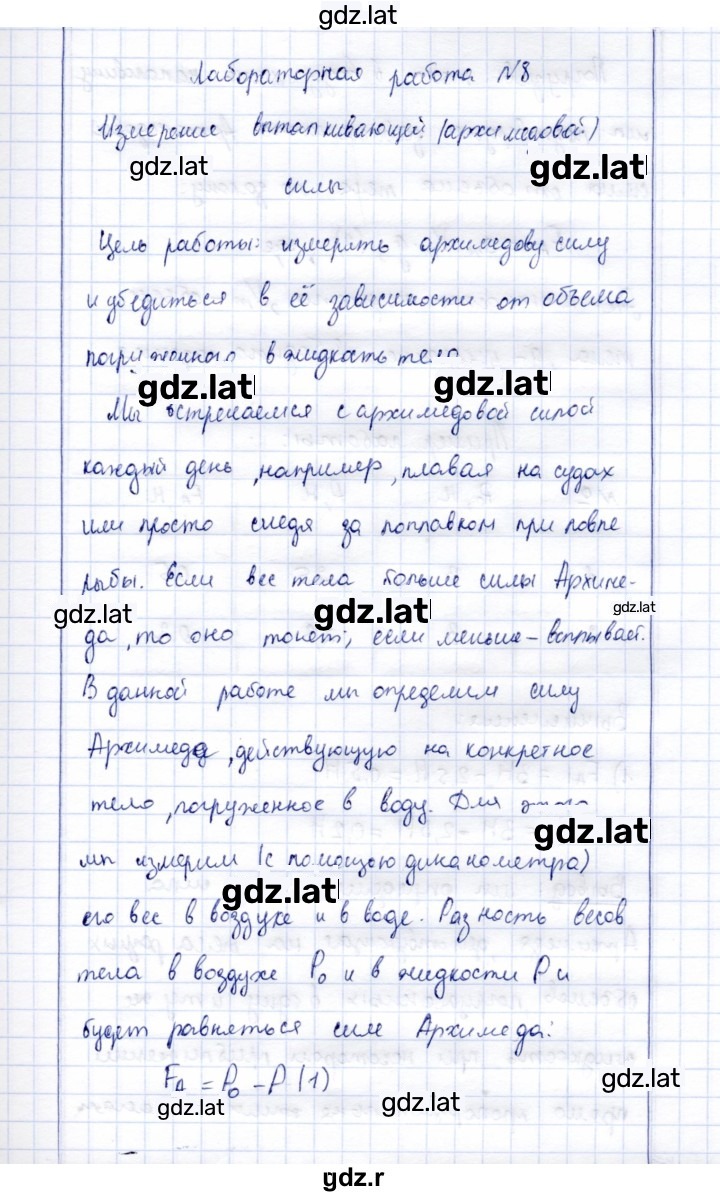 gdz.lat
Лабораторная работа №8
Измерение выталкивающей (архимедовой)
gdz.lat gdz.lat
силы
Цель работы: измерять архимедову силу
и убедиться в её зависимости от объема
погруженного в жидкость тела
gdz.lat gdz.lat
Мы встречаемся с архимедовой силой
каждый день, например, плавая на судах
или просто следя за поплавком при ловле
рыбы. Если вес тела больше силы Архиме-
gdz.lat gdz.lat gdz.lat
да, то оно тонет, если меньше - всплывает.
В данной работе мы определим силу
Архимеда, действующую на конкретное
тело, погруженное в воду. Для
gdz.lat
мы измерим (с помощью динамометра)
gdz.lat
его вес в воздухе и в воде. Разность весов
тела в воздухе P₀ и в жидкости P и
будет равняться силе Архимеда:
F_A = P₀ - P (1)
gdz.lat gdz.lat gdz.lat
gdz.r